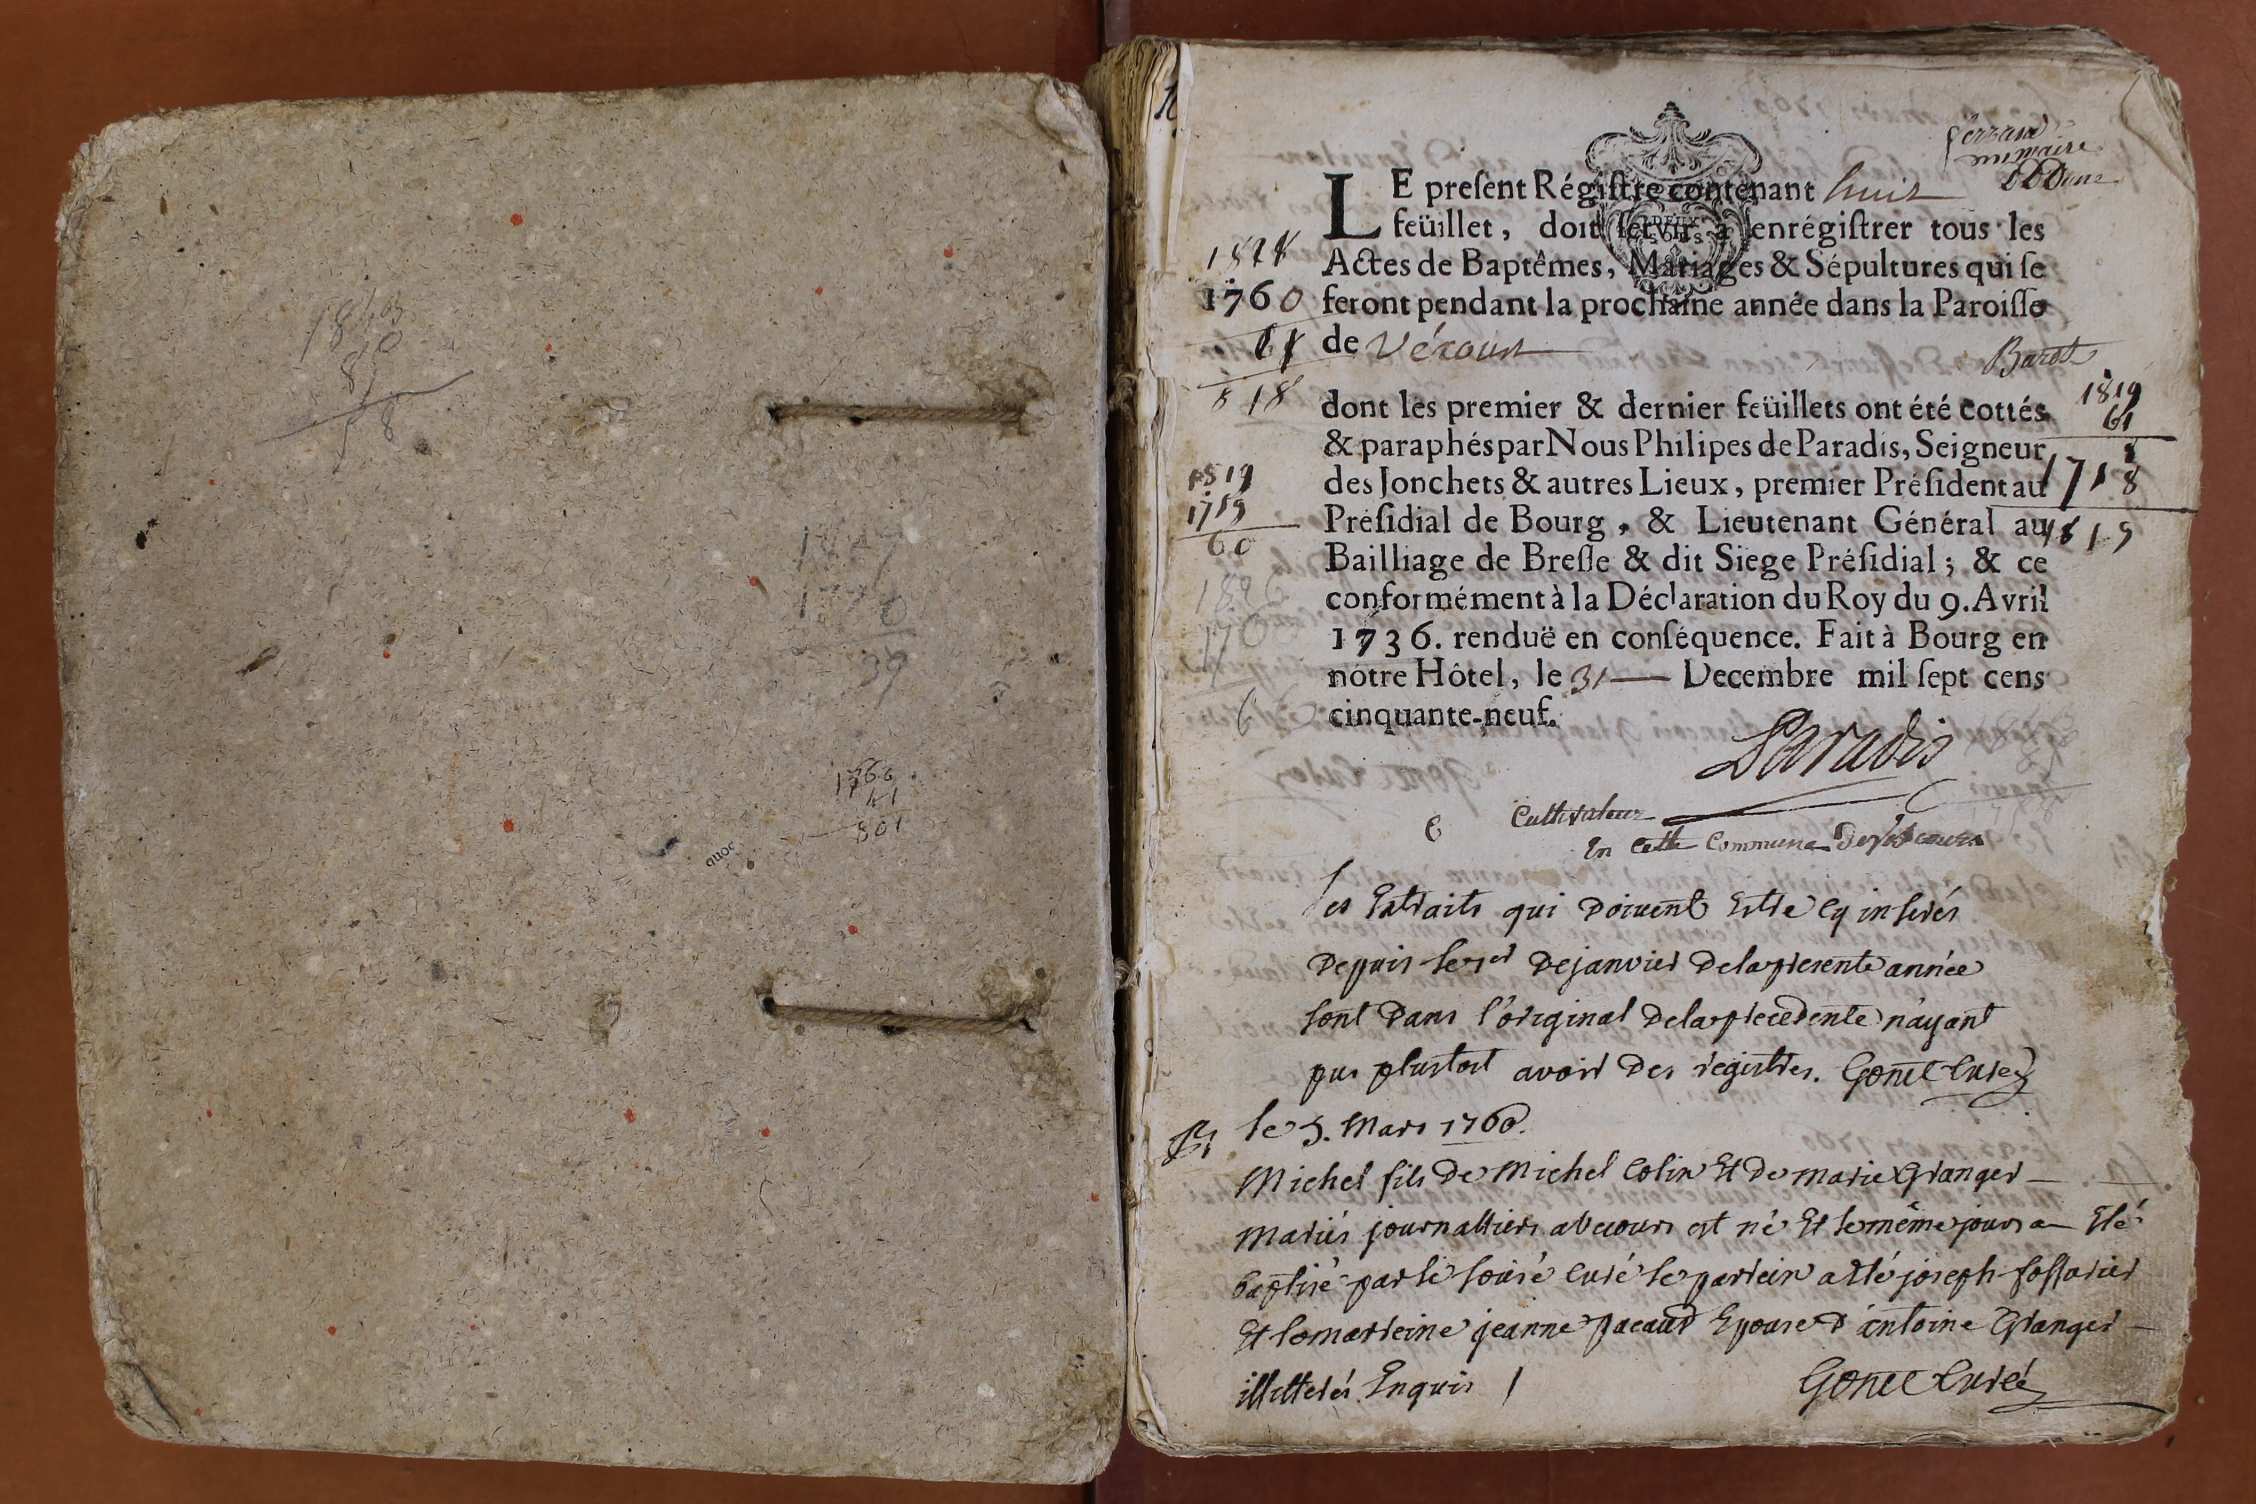 18
1760
39
1766
41
801
Ferrand
LE preſent Régiſtre contenant huit
feüillet, doit ſervir à enrégiſtrer tous les
Actes de Baptêmes, Mariages & Sépultures qui ſe
1760 feront pendant la prochaine année dans la Paroiſſe
61
de Vécour
Barot
818
dont les premier & dernier feüillets ont été cottés
1819
61
& paraphés par Nous Philipes de Paradis, Seigneur
1718
des Jonchets & autres Lieux, premier Préſident au
1819
1759
60
Préſidial de Bourg, & Lieutenant Général au
1819
Bailliage de Breſſe & dit Siege Préſidial; & ce
conformément à la Déclaration du Roy du 9. Avril
1736. renduë en conſéquence. Fait à Bourg en
notre Hôtel, le 31 Decembre mil ſept cens
6
cinquante-neuf.
Paradis
Cultivateur
En cette Commune
Les Extraits qui doivent Estre Cy inserés
Depuis le 1er De janvier De la presente année
sont Dans l'original De la precedente n'ayant
pus plustost avoir Des registres. Gonet Curé
le 5. Mars 1760.
Michel fils De Michel Colin Et De marie Granger
mariés journalliers a vecours est né Et le même jour a Eté
baptisé par le sousé Curé le parrein a Eté joseph
Et la marreine jeanne pacaud Epouse d'antoine Granger
illitterés Enquis
Gonet Curé